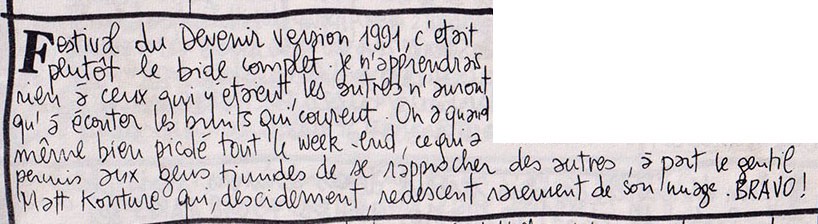 Festival du Devenir version 1991, c'était
plutôt le bide complet. Je n'apprendrais
rien à ceux qui y étaient, les autres n'auront
qu'à écouter les bruits qui courent. On a quand
même bien picolé tout le week-end, ce qui a
permis aux gens timides de se rapprocher des autres, à part le gentil
Matt Konture qui, descidement, redescent rarement de son nuage. BRAVO!